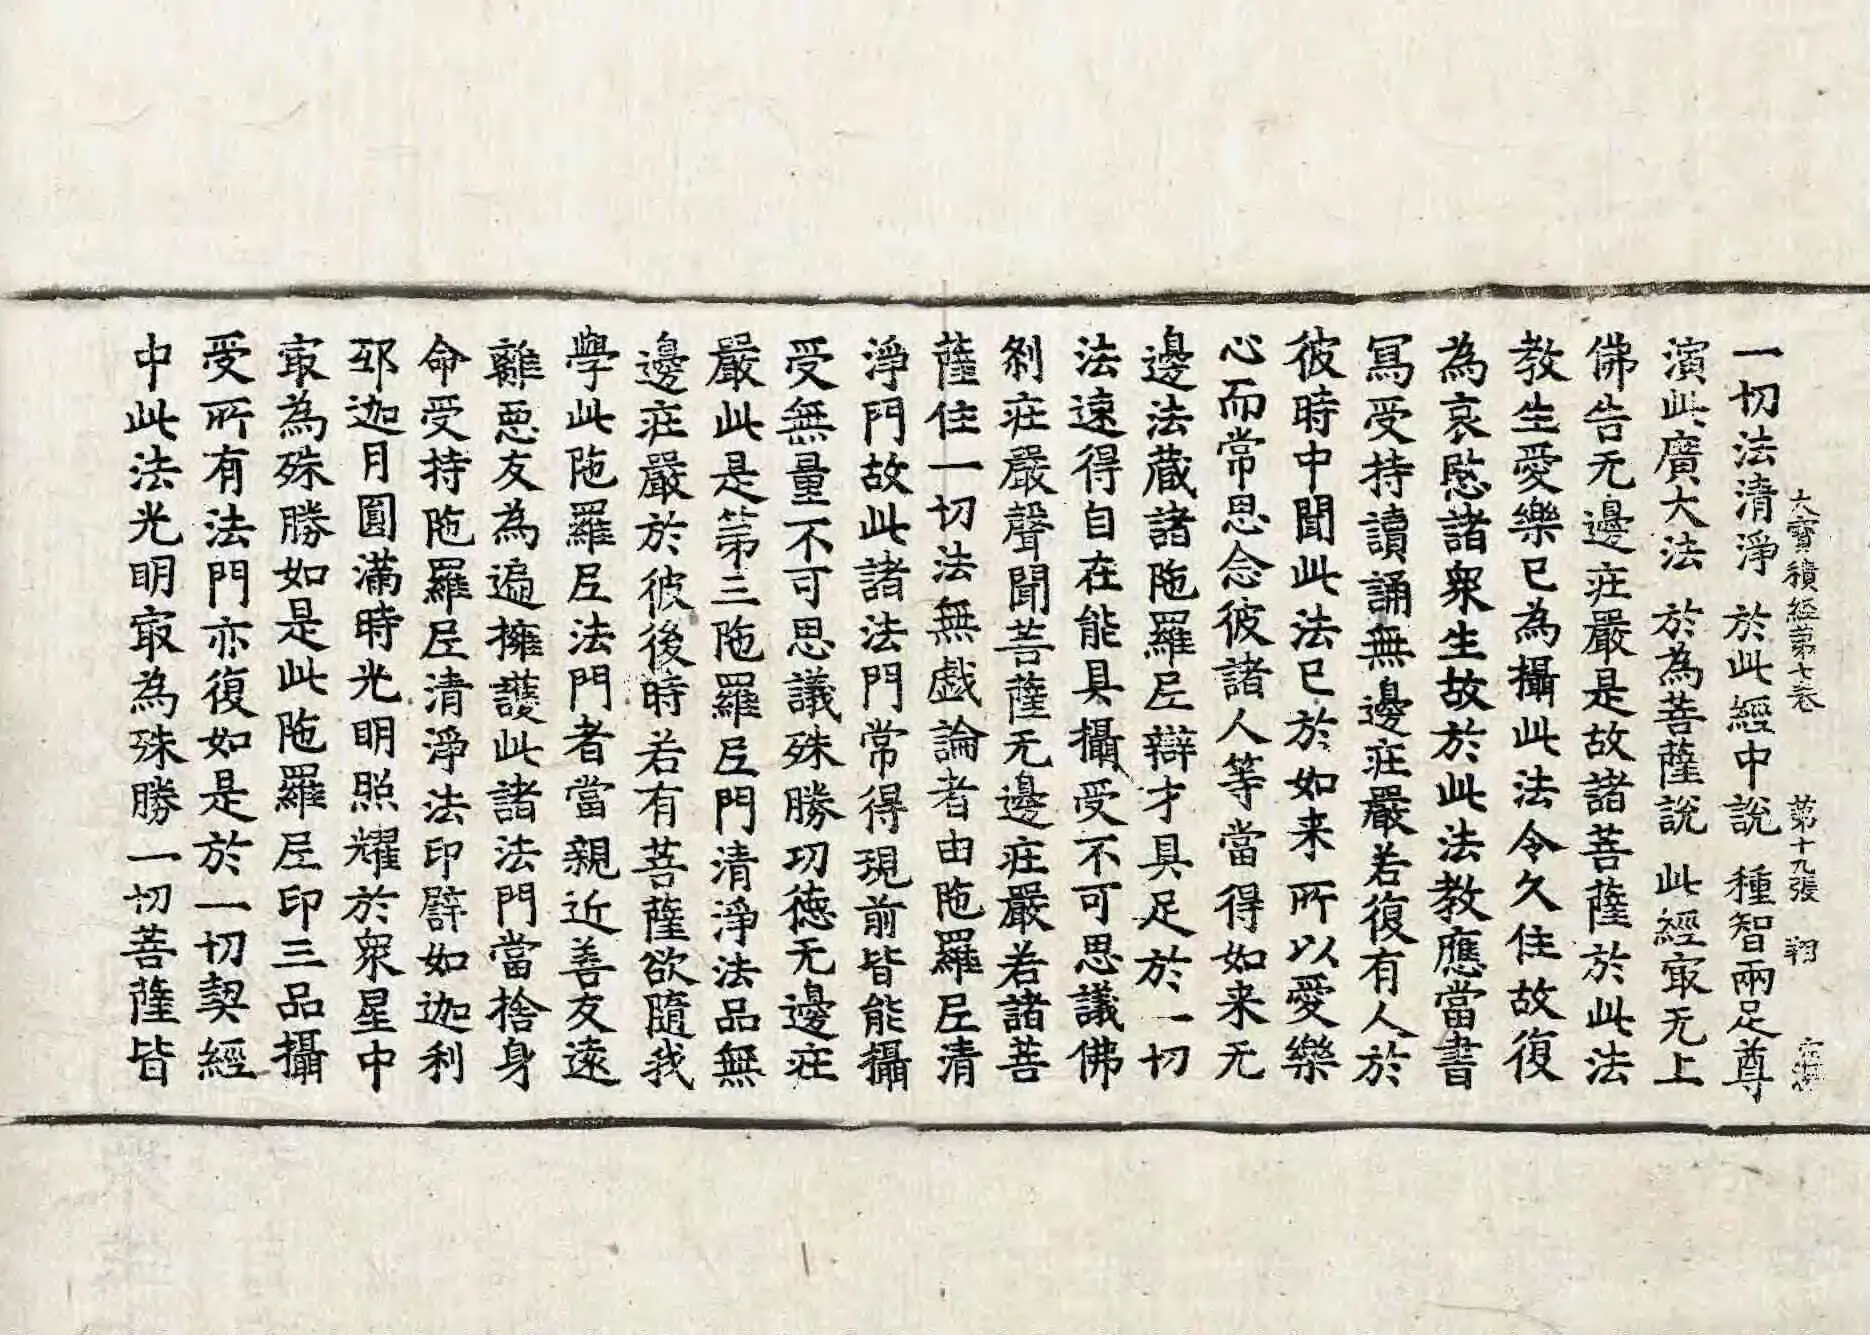 大寶積經第七卷 第十九張 翔
一切法清淨 於此經中說 種智兩足尊
演此廣大法 於為菩薩說 此經㝡无上
佛告无邊莊嚴是故諸菩薩於此法
教生愛樂已為攝此法令久住故復
為哀愍諸衆生故於此法教應當書
寫受持讀誦無邊莊嚴若復有人於
彼時中聞此法已於如来所以愛樂
心而常思念彼諸人等當得如来无
邊法蔵諸陁羅𡰱辯才具足於一切
法速得自在能具攝受不可思議佛
剎莊嚴聲聞菩薩无邊莊嚴若諸菩
薩住一切法無戱論者由陁羅𡰱清
淨門故此諸法門常得現前皆能攝
受無量不可思議殊勝功德无邊莊
嚴此是第三陁羅𡰱門清淨法品無
邊莊嚴於彼後時若有菩薩欲隨我
學此陁羅𡰱法門者當親近善友遠
離惡友為遍擁護此諸法門當捨身
命受持陁羅𡰱清淨法印譬如迦利
邪迦月圓滿時光明照耀於衆星中
㝡為殊勝如是此陁羅𡰱印三品攝
受所有法門亦復如是於一切契經
中此法光明㝡為殊勝一切菩薩皆